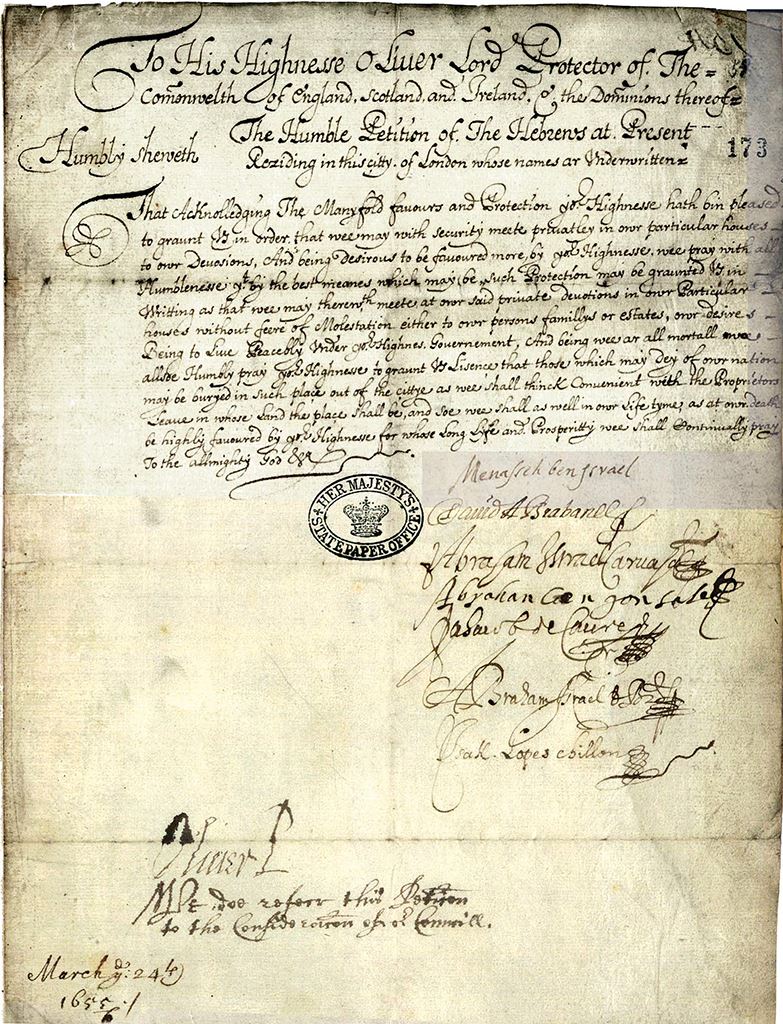 To His Highnesse Oliver Lord Protector of The=
Comonwelth of England, Scotland, and Ireland, & the Dominions thereof=
The Humble Petition of The Hebrews at Present
Humbly sheweth Reziding in this city of London whose names ar Underwritten=
173
That Acknolledging The Manyfold favours and Protection yor Highnesse hath bin pleased
to graunt Us in order that wee may with security meete privatley in owr particular houses
to owr Devosions, And being desirous to be favoured more by yor Highnesse, wee pray with all
Humblenesse yt by the best meanes which may be, such Protection may be graunted Us in
Writting as that wee may therewth meete at owr said private devotions in owr Particular
houses without feere of Molestation either to owr persons famillys or estates, owr desires
Being to Live Peacebly Under yor Highnes Governement, And being wee ar all mortall wee
allsoe Humbly pray yor Highnesse to graunt Us Lisence that those which may dey of owr nation
may be buryed in such place out of the cittye as wee shall thinck Convenient with the Proprietors
Leave in whose Land the place shall be, and soe wee shall as well in owr Life tyme, as at owr death
be highly favoured by yor Highnesse for whose Long Life and Prosperitty wee shall Continually pray
To the allmighty God &c
Menasseh ben Israel
HER MAJESTY'S
STATE PAPER OFFICE
David Abrabanel
Abraham Israel Carvajal
Abraham Coen gonsales
Jahacob de Caceres
Abraham Israel
Isak Lopes chillon
Oliver P
Wee doe referr this Peticon
to the Consideracon of or Councill.
March ye: 24th
1655/6